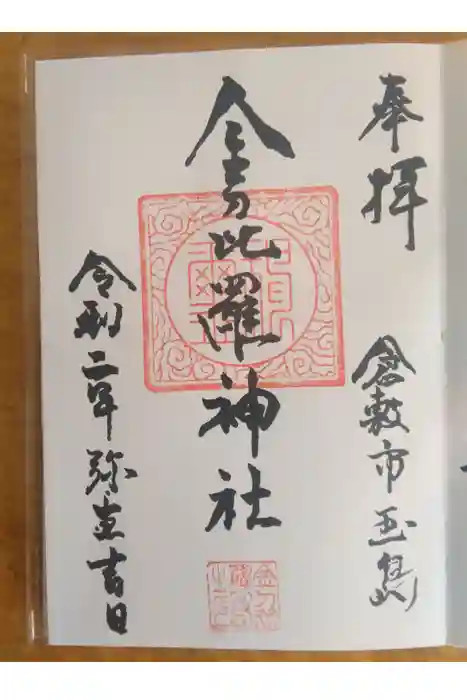 奉拝
倉敷市玉島
金刀比羅神社
令和二年弥生吉日